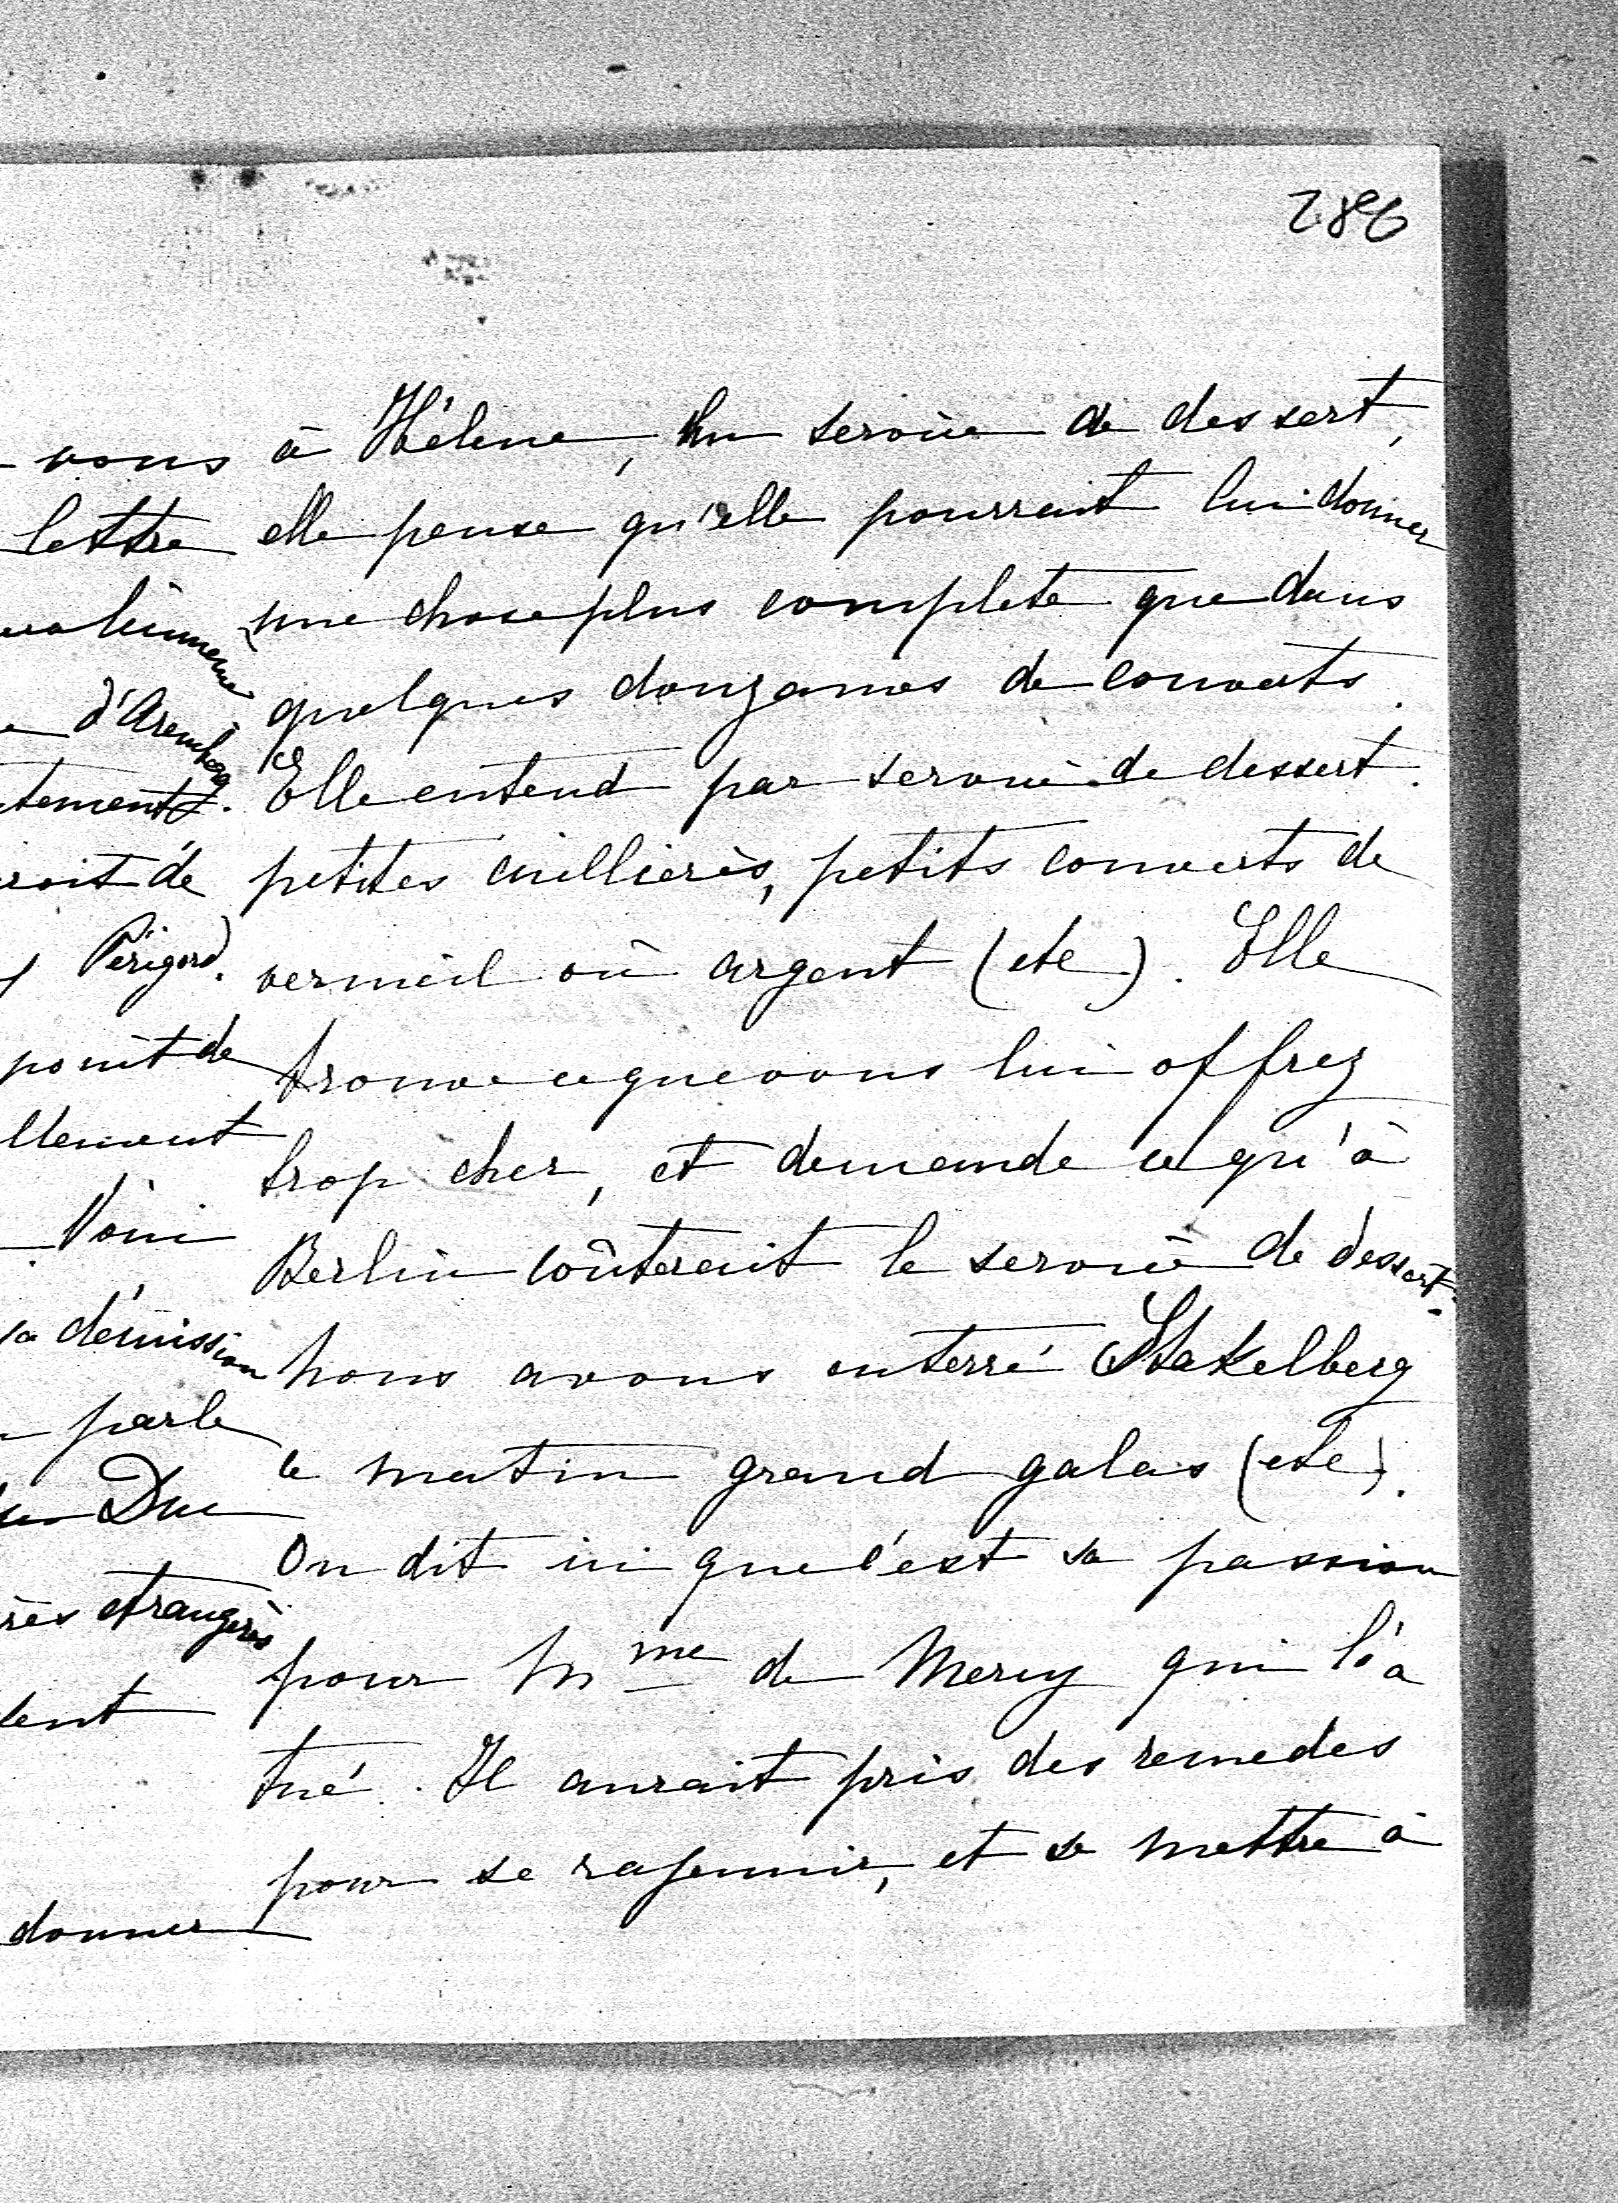 286
à Hélène, un service de dessert,
elle pense qu'elle pourrait lui donner
une chose plus complete que dans
quelques douzaines de couverts.
Elle entend par service de dessert.
petites cuillieres, petits couverts de
vermeil où argent (etc). Elle
trouve ce que vous lui offrez
trop cher, et demande ce qu'à
Berlin coûterait le service de dessert.
Nous avons enterré Stakelberg
ce matin grand galas (etc).
On dit ici que c'est sa passion
pour Mme de Mercy qui l'a
tué. Il aurait pris des remedes
pour se rajeunir, et se mettre à
vous
lettre
d'Aremberg
tements.
roit de
Périgord.
point de
llement
Voici
sa démission
parle
Duc
res etrangères
dent
donner